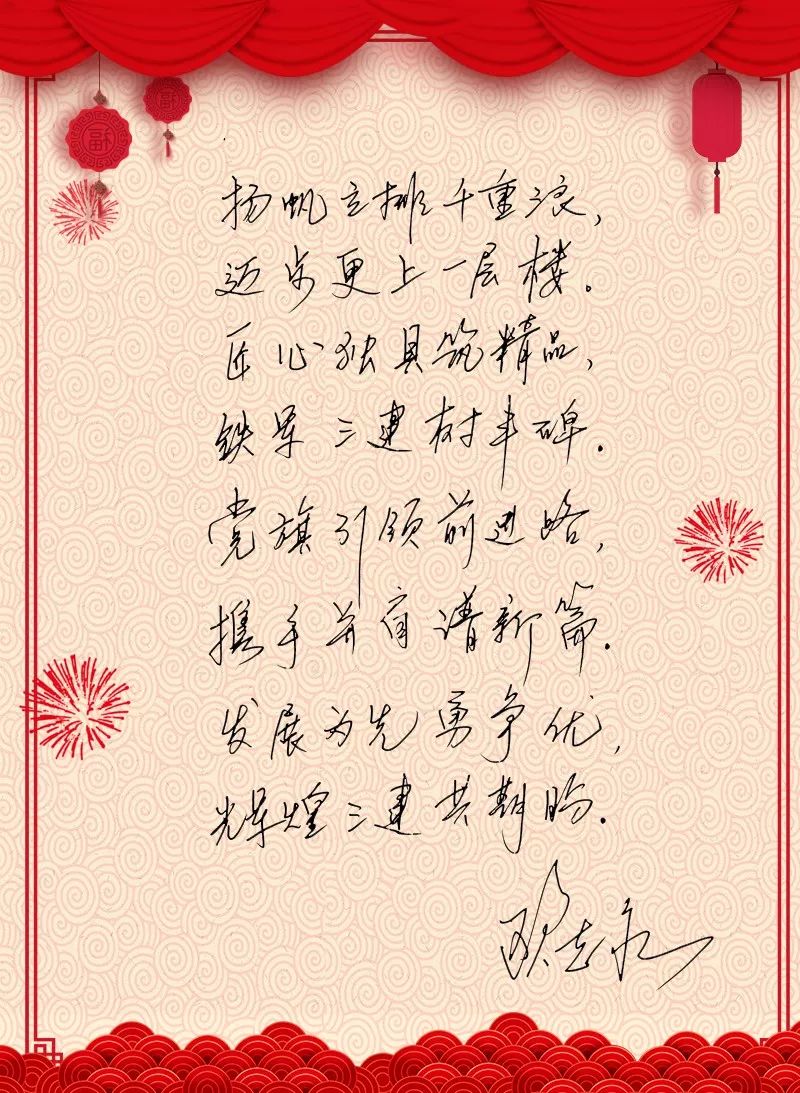 福
福
扬帆立排千重浪,
迈步更上一层楼。
匠心独具筑精品,
铁军三建树丰碑.
党旗引领前进路,
携手并肩谱新篇.
发展为先勇争优,
辉煌三建共期盼.